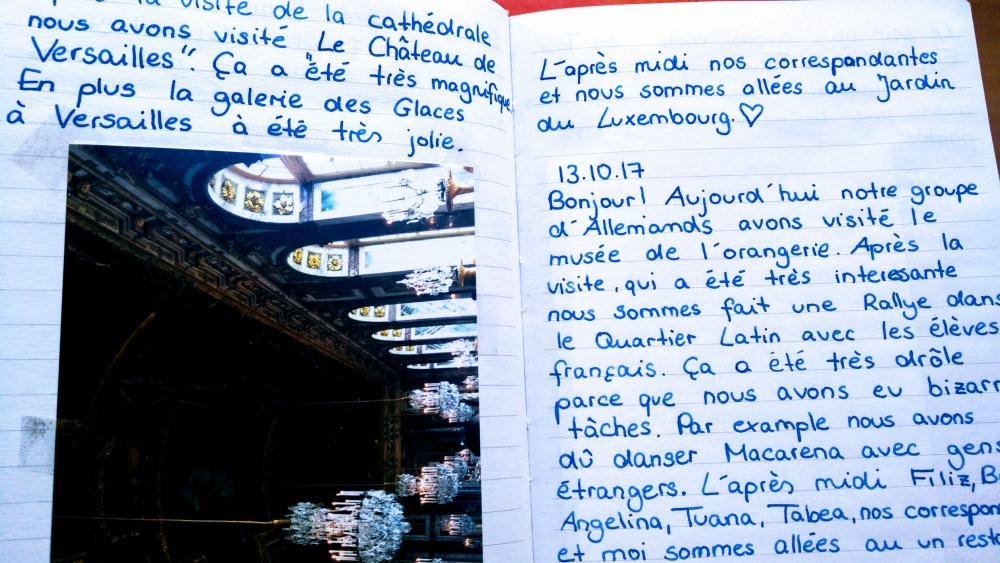 la visite de la cathédrale
nous avons visité "Le Château de
Versailles". Ça a été très magnifique.
En plus la galerie des Glaces
à Versailles à été très jolie.
L'après midi nos correspondantes
et nous sommes allées au Jardin
du Luxembourg. ♡
13.10.17
Bonjour! Aujourd'hui notre groupe
d'Allemands avons visité le
musée de l'orangerie. Après la
visite, qui a été très interessante
nous sommes fait une Rallye dans
le Quartier Latin avec les élèves
français. Ça a été très drôle
parce que nous avons eu bizarr
tâches. Par example nous avons
dû danser Macarena avec gens
étrangers. L'après midi Filiz, B
Angelina, Tuana, Tabea, nos correspon
et moi sommes allées au un resto